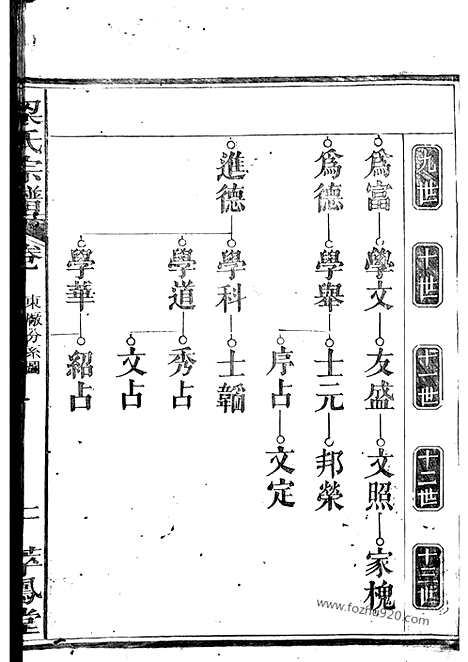 九世
十世
十一世
十二世
十三世
爲富
學文
友盛
文照
家槐
爲德
學舉
士元
邦榮
序占
文定
進德
學科
士韜
學道
秀占
文占
學華
紹占
梁氏宗譜
卷
東廠分系圖
孝鳳堂
www.fozhu920.com